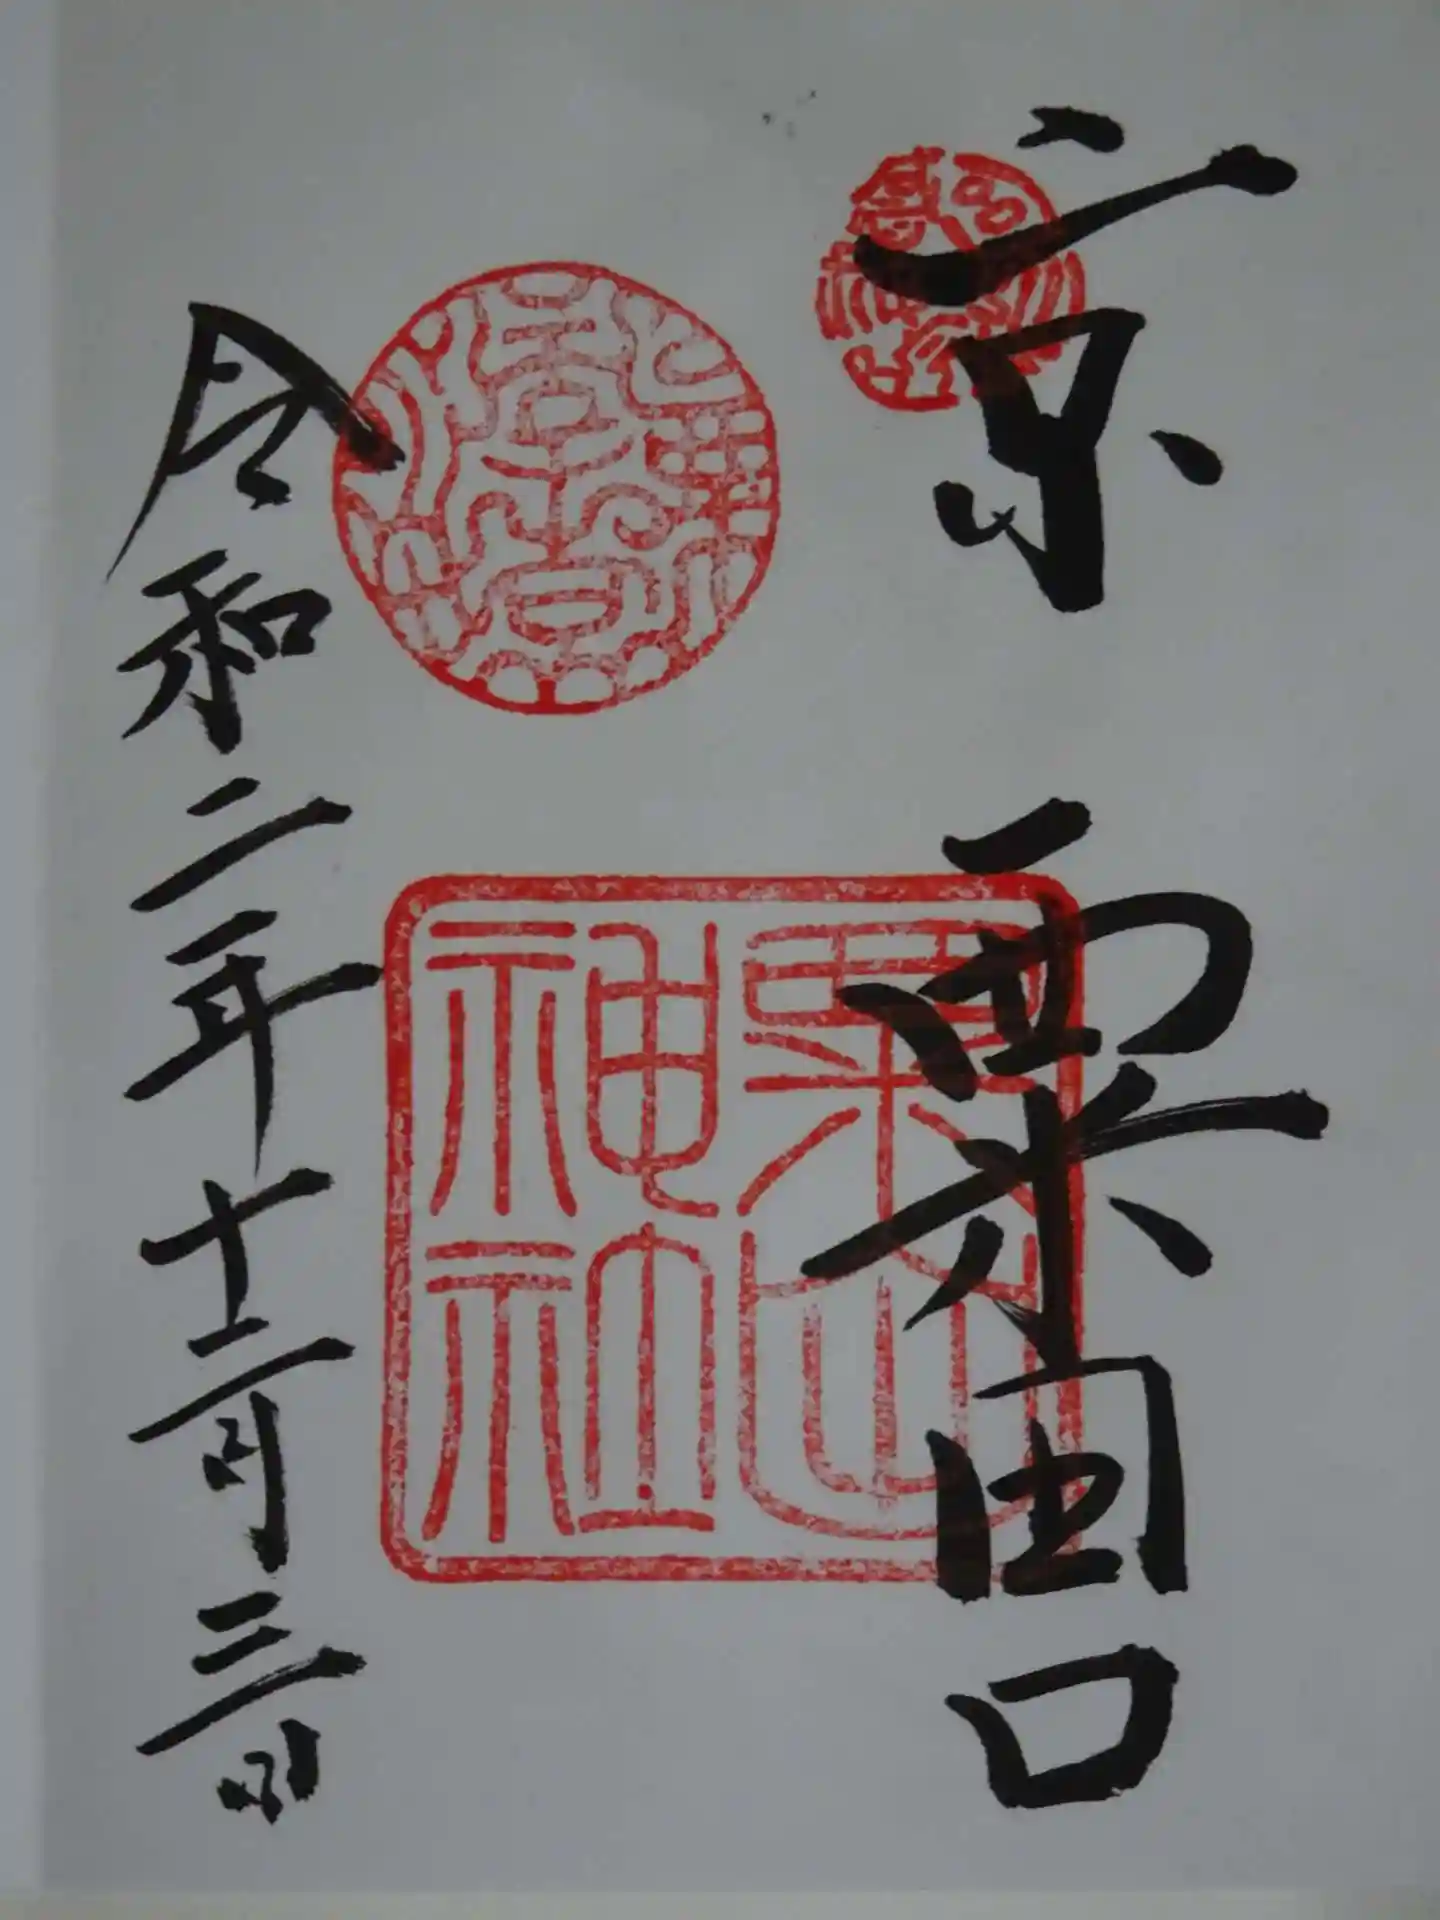 京 粟田口
粟田
神社
令和二年十二月三日